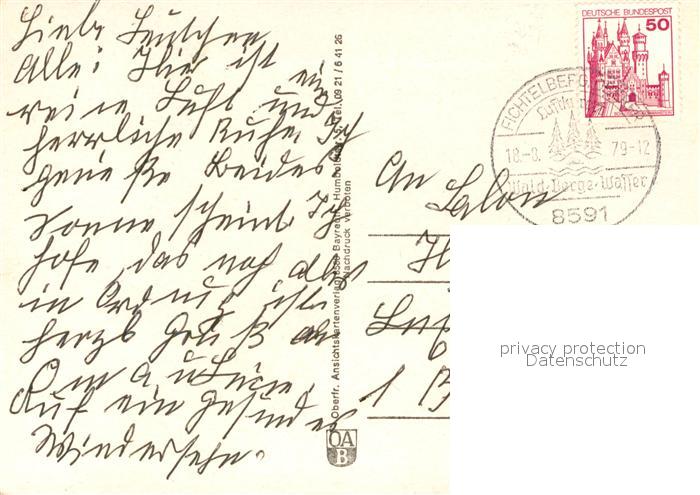 Liebe Leutchen
Alle! Hier ist ein
reine Luft und
herrliche Ruhe. Ich
genieße beides
Sonne scheint. Ich
hofe das noch alles
in Ordnung ist.
herzl Gruß an
Oma u
Auf ein gesundes
Wiedersehn.
Oberfr. Ansichtskartenverlag 8580 Bayreuth, Humboldtstr. Tel. 09 21 / 6 41 26
Nachdruck verboten
OA
B
DEUTSCHE BUNDESPOST
50
FICHTELBERG
18.-8. 79-12
Wald·Berge·Wasser
8591
An
Salon
1 B
privacy protection
Datenschutz